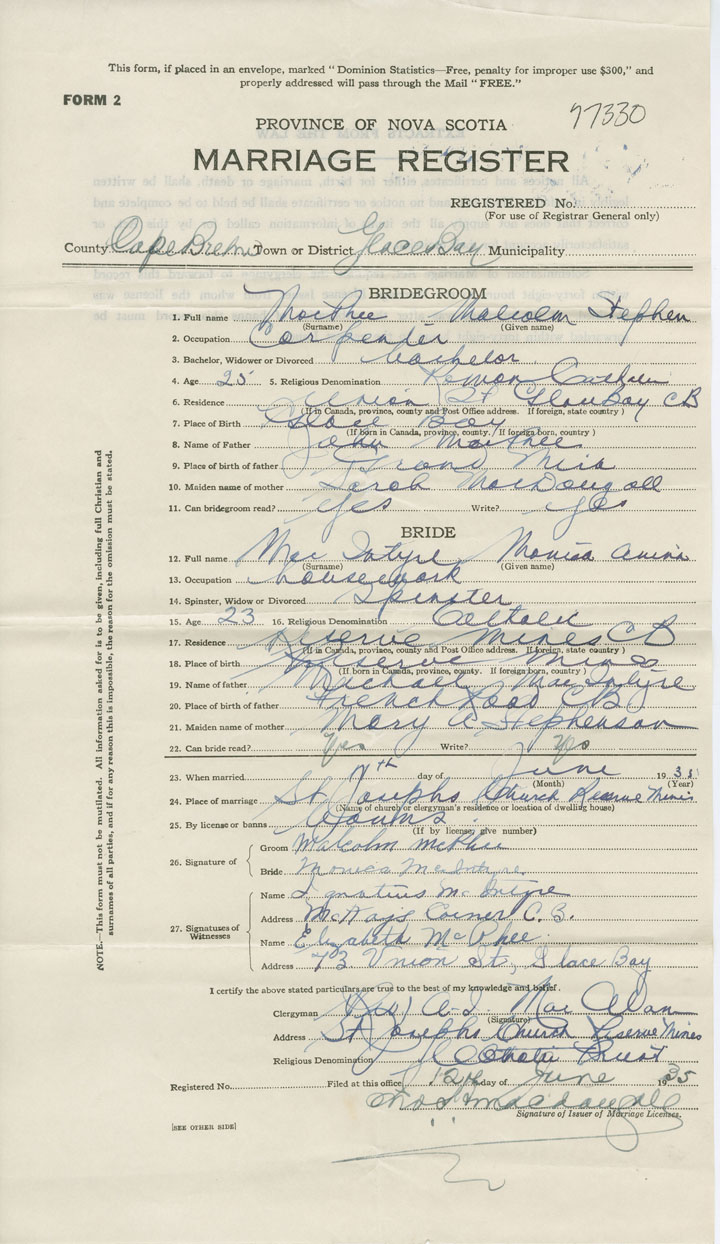 This form, if placed in an envelope, marked "Dominion Statistics—Free, penalty for improper use $300," and
properly addressed will pass through the Mail "FREE."
FORM 2
97330
PROVINCE OF NOVA SCOTIA
MARRIAGE REGISTER
REGISTERED No.
(For use of Registrar General only)
County Cape Breton Town or District Glace Bay Municipality
BRIDEGROOM
1. Full name MacPhee Malcolm Stephen
(Surname) (Given name)
2. Occupation Carpenter
3. Bachelor, Widower or Divorced bachelor
4. Age 25 5. Religious Denomination Roman Catholic
6. Residence Union St Glace Bay CB
(If in Canada, province, county and Post Office address. If foreign, state country)
7. Place of Birth Glace Bay
(If born in Canada, province, county. If foreign born, country)
8. Name of Father John MacPhee
9. Place of birth of father Grand Mira
10. Maiden name of mother Sarah MacDougall
11. Can bridegroom read? Yes Write? Yes
BRIDE
12. Full name Mac Intyre Monica
(Surname) (Given name)
13. Occupation housework
14. Spinster, Widow or Divorced Spinster
15. Age 23 16. Religious Denomination Catholic
17. Residence Reserve Mines CB
(If in Canada, province, county and Post Office address. If foreign, state country)
18. Place of birth Reserve Mines
(If born in Canada, province, county. If foreign born, country)
19. Name of father Michael MacIntyre
20. Place of birth of father French Road CB
21. Maiden name of mother Mary A Stephenson
22. Can bride read? Yes Write? Yes
23. When married 7th day of June 19
(Month) (Year)
24. Place of marriage St Josephs Church Reserve Mines
(Name of church or clergyman's residence or location of dwelling house)
25. By license or banns Banns
(If by license, give number)
26. Signature of
Groom Malcolm McPhee
Bride Monica McIntyre
27. Signatures of Witnesses
Name Ignatius McIntyre
Address McKays Corner C. B.
Name Elizabeth McPhee
Address 73 Union St., Glace Bay
I certify the above stated particulars are true to the best of my knowledge and belief.
Clergyman (Rev) A. J. Mac
(Signature)
Address St Josephs Church Reserve Mines
Religious Denomination Catholic Priest
Registered No. Filed at this office 12th day of June 1935
Macdougall
Signature of Issuer of Marriage Licenses.
[SEE OTHER SIDE]
NOTE.—This form must not be mutilated. All information asked for is to be given, including full Christian and
surnames of all parties, and if for any reason this is impossible, the reason for the omission must be stated.